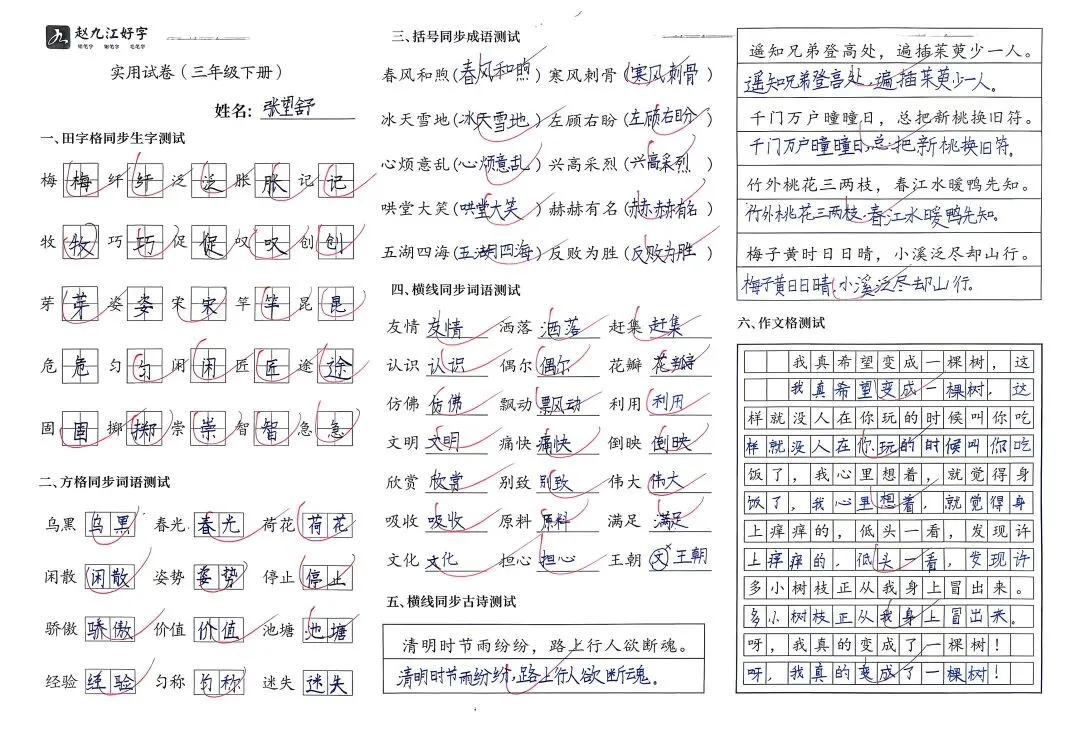 赵九江好字
铅笔字 钢笔字 毛笔字
实用试卷（三年级下册）
姓名: 张望舒
一、田字格同步生字测试
梅 梅 纤 纤 泛 泛 胀 胀 记 记
牧 牧 巧 巧 促 促 叹 叹 创 创
芽 芽 姿 姿 宋 宋 竿 竿 昆 昆
危 危 匀 匀 闲 闲 匠 匠 途 途
固 固 掷 掷 崇 崇 智 智 急 急
二、方格同步词语测试
乌黑 乌黑 春光 春光 荷花 荷花
闲散 闲散 姿势 姿势 停止 停止
骄傲 骄傲 价值 价值 池塘 池塘
经验 经验 匀称 匀称 迷失 迷失
三、括号同步成语测试
春风和煦(春风和煦) 寒风刺骨(寒风刺骨)
冰天雪地(冰天雪地) 左顾右盼(左顾右盼)
心烦意乱(心烦意乱) 兴高采烈(兴高采烈)
哄堂大笑(哄堂大笑) 赫赫有名(赫赫有名)
五湖四海(五湖四海) 反败为胜(反败为胜)
四、横线同步词语测试
友情 友情 洒落 洒落 赶集 赶集
认识 认识 偶尔 偶尔 花瓣 花瓣
仿佛 仿佛 飘动 飘动 利用 利用
文明 文明 痛快 痛快 倒映 倒映
欣赏 欣赏 别致 别致 伟大 伟大
吸收 吸收 原料 原料 满足 满足
文化 文化 担心 担心 王朝 文 王朝
五、横线同步古诗测试
清明时节雨纷纷，路上行人欲断魂。
清明时节雨纷纷，路上行人欲断魂。
遥知兄弟登高处，遍插茱萸少一人。
遥知兄弟登高处，遍插茱萸少一人。
千门万户曈曈日，总把新桃换旧符。
千门万户曈曈日，总把新桃换旧符。
竹外桃花三两枝，春江水暖鸭先知。
竹外桃花三两枝，春江水暖鸭先知。
梅子黄时日日晴，小溪泛尽却山行。
梅子黄日日晴，小溪泛尽却山行。
六、作文格测试
我真希望变成一棵树，这
我真希望变成一棵树，这
样就没人在你玩的时候叫你吃
样就没人在你玩的时候叫你吃
饭了，我心里想着，就觉得身
饭了，我心里想着，就觉得身
上痒痒的，低头一看，发现许
上痒痒的，低头一看，发现许
多小树枝正从我身上冒出来。
多小树枝正从我身上冒出来。
呀，我真的变成了一棵树！
呀，我真的变成了一棵树！